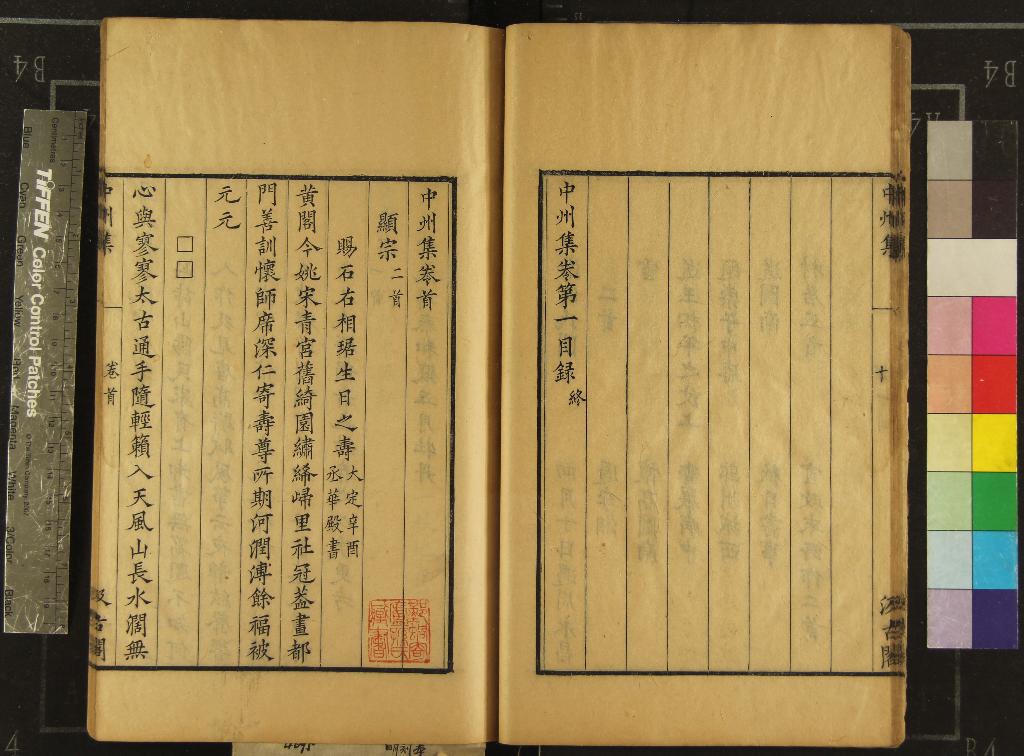 中州集
十
汲古閣
中州集卷第一目録終
中州集卷首
顯宗二首
賜石右相琚生日之壽大定辛酉丞華殿書
黃閣今姚宋青宮舊綺園繡絺歸里社冠蓋畫都
門善訓懷師席深仁寄壽尊所期河潤溥餘福被
元元
□□
心與寥寥太古通手隨輕籟入天風山長水濶無
中州集
卷首
汲古閣
B4
B4
TIFFEN Color Control Patches
Blue
Cyan
Green
Yellow
Red
Magenta
White
3/Color
Black
Centimetres